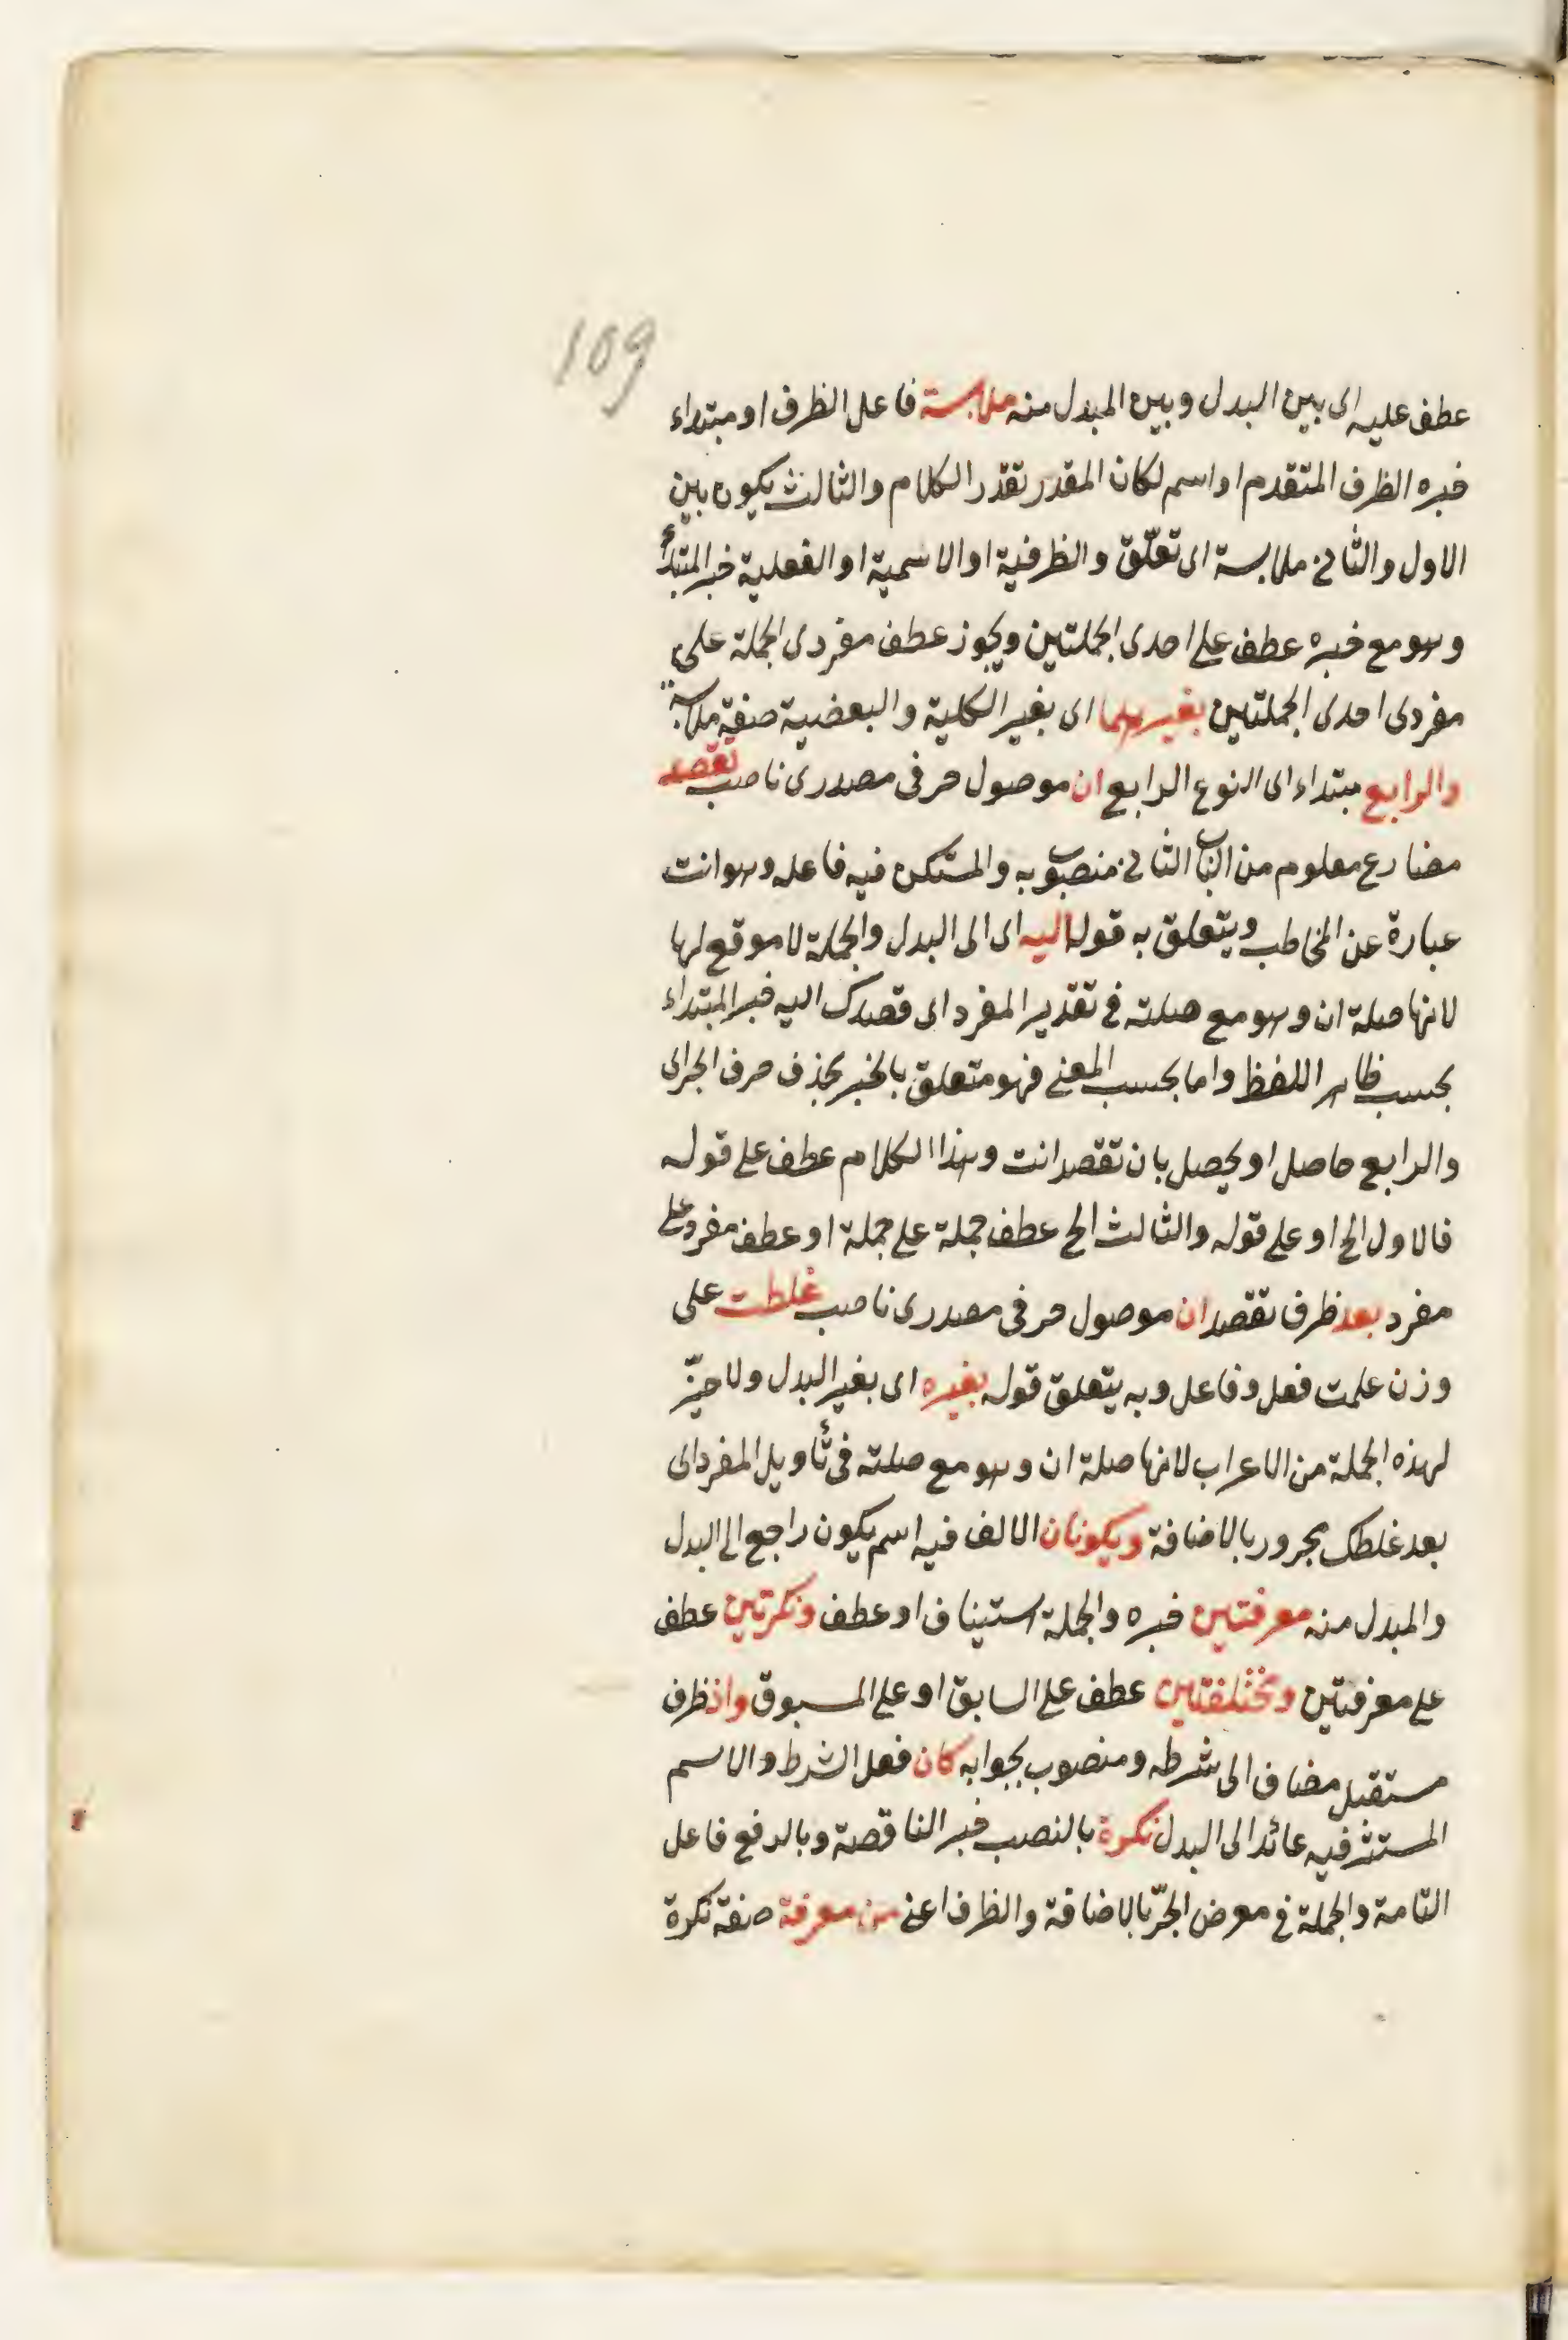 109
عطف عليه اى بين البدل وبين المبدل منه ملابسة فاعل الظرف او مبتداء
خبره الظرف المتقدم او اسم لكان المقدر تقدر الكلام والثالث يكون بين
الاول والثانى ملابسة اى تعلّق والظرفية او الاسمية او الفعلية خبر المبتدأ
وهو مع خبره عطف على احدى الجملتين ويجوز عطف مفردى الجملة على
مفردى احدى الجملتين بغيرهما اى بغير الكلية والبعضية صفة ملابسة
والرابع مبتداء اى النوع الرابع ان موصول حرفى مصدرى ناصب تقصد
مضارع معلوم من الباب الثانى منصوب به والمستكن فيه فاعله وهو انت
عبارة عن المخاطب ويتعلق به قوله اليه اى الى البدل والجملة لا موقع لها
لانها صلة ان وهو مع صلته فى تقدير المفرد اى قصدك اليه خبر المبتداء
بحسب ظاهر اللفظ واما بحسب المعنى فهو متعلق بالخبر بحذف حرف الجر اى
والرابع حاصل او يحصل بان تقصد انت وهذا الكلام عطف على قوله
فالاول الخ او على قوله والثالث الخ عطف جملة على جملة او عطف مفرد على
مفرد بعد ظرف تقصد ان موصول حرفى مصدرى ناصب غلطت على
وزن علمت فعل وفاعل وبه يتعلق قوله بغيره اى بغير البدل ولا حيّز
لهذه الجملة من الاعراب لانها صلة ان وهو مع صلته فى تأويل المفرد اى
بعد غلطك مجرور بالاضافة ويكونان الالف فيه اسم يكون راجع الى البدل
والمبدل منه معرفتين خبره والجملة استيناف او عطف ونكرتين عطف
على معرفتين ومختلفتين عطف على السابق او على المسبوق واذ ظرف
مستقبل مضاف الى شرطه ومنصوب بجوابه كان فعل الشرط والاسم
المستتر فيه عائد الى البدل نكرة بالنصب خبر الناقصة وبالرفع فاعل
التامة والجملة فى معرض الجرّ بالاضافة والظرف اعنى من معرفة صفة نكرة